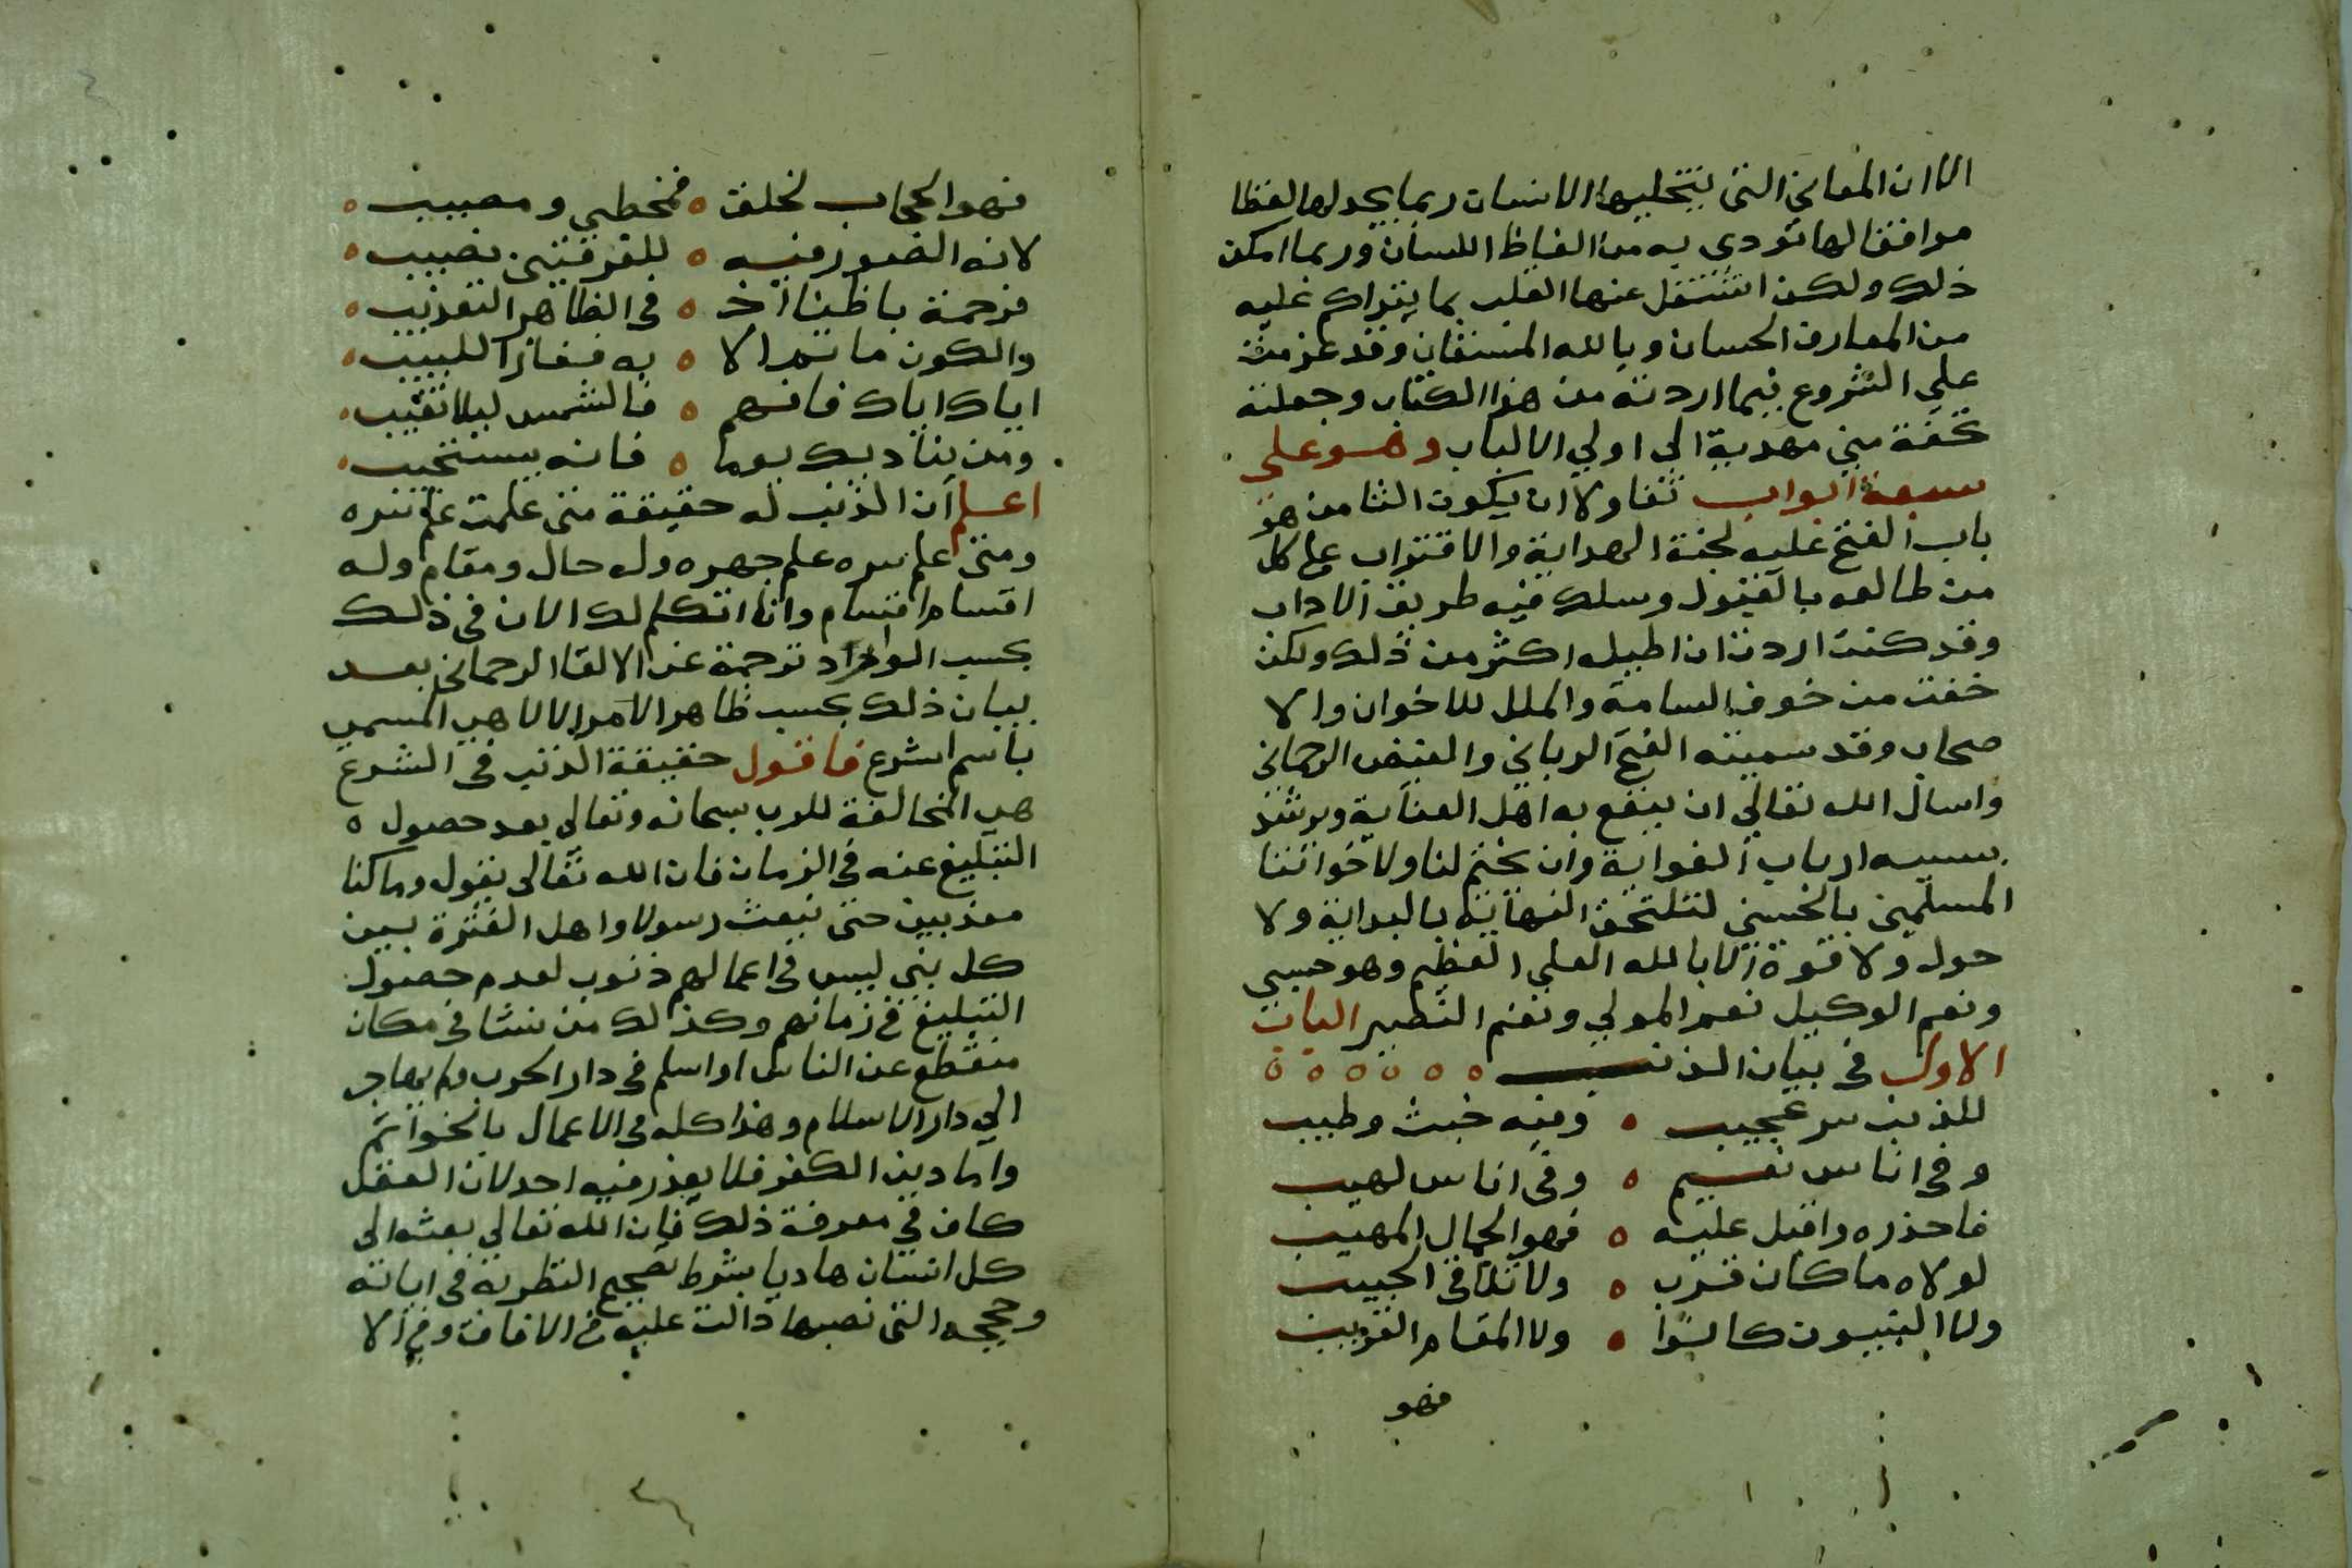 الا ان المعاني التي يتجليها الانسان ربما يجد لها لفظا
موافقا لها تودي به من الفاظ اللسان وربما امكن
ذلك ولكن اشتغل عنها القلب بما يتراكم عليه
من المعارف الحسان وبالله المستعان وقد عزمت
علي الشروع فيما اردته من هذا الكتاب وجعلته
تحفة مني مهدية الى اولي الالباب وهو على
سبعة ابواب تفاولا ان يكون الثامن هو
باب الفتح عليه لجنة الهداية والاقتراب على كل
من طالعه بالقبول وسلك فيه طريق الاداب
وقد كنت اردت ان اطيل اكثر من ذلك ولكن
خفت من خوف السامة والملل للاخوان والا
صحاب وقد سميته الفتح الرباني والفيض الرحماني
واسال الله تعالي ان ينفع به اهل العناية ويرشد
بسببه ارباب الغواية وان يختم لنا ولاخواننا
المسلمين بالحسني لتلتحق النهاية بالبداية ولا
حول ولا قوة الا بالله العلي العظيم وهو حسبي
ونعم الوكيل نعم المولي ونعم النصير الباب
الاول في بيان الذنب
للذنب سر عجيب ه وفيه خبث وطيب
وفي اناس نعيم ه وفي اناس لهيب
فاحذره واقبل عليه ه فهو الجمال المهيب
لولاه ما كان قرب ه ولا تلافى الحبيب
ولا النبيون كانوا ه ولا المقام القريب
فهو
فهو الحجاب لخلق ه فمخطي ومصيب ه
لانه الضور فيه ه للفرقتين نصيب ه
فرحمة باطنا اذ ه في الظاهر التعذيب ه
والكون ما تم الا ه به ففاز اللبيب ه
اياك اياك فافهم ه فالشمس ليلا تغيب ه
ومن يناديك يوما ه فانه يستجيب ه
اعلم أن الذنب له حقيقة متى علمت علم سره
ومتى علم سره علم جهره وله حال ومقام وله
اقسام اقسام وانا اتكلم لك الان في ذلك
بحسب الوارد ترجمة عن الالقا الرحماني بعد
بيان ذلك بحسب ظاهر الامر الالاهي المسمى
باسم الشرع فاقول حقيقة الذنب في الشرع
هي المخالفة للرب سبحانه وتعالي بعد حصول ه
التبليغ عنه في الزمان فان الله تعالى يقول وما كنا
معذبين حتى نبعث رسولا واهل الفترة بين
كل نبي ليس في اعمالهم ذنوب لعدم حصول
التبليغ في زمانهم وكذلك من نشا في مكان
منقطع عن الناس او اسلم في دار الحرب ولم يهاجر
الي دار الاسلام وهذا كله في الاعمال بالخواتم
واما دين الكفر فلا يعذر فيه احد لان العقل
كاف في معرفة ذلك فان الله تعالي بعثه الى
كل انسان هاديا بشرط تصحيح النظر به في اياته
وحججه التي نصبها دالت عليه في الافاق وفي الا